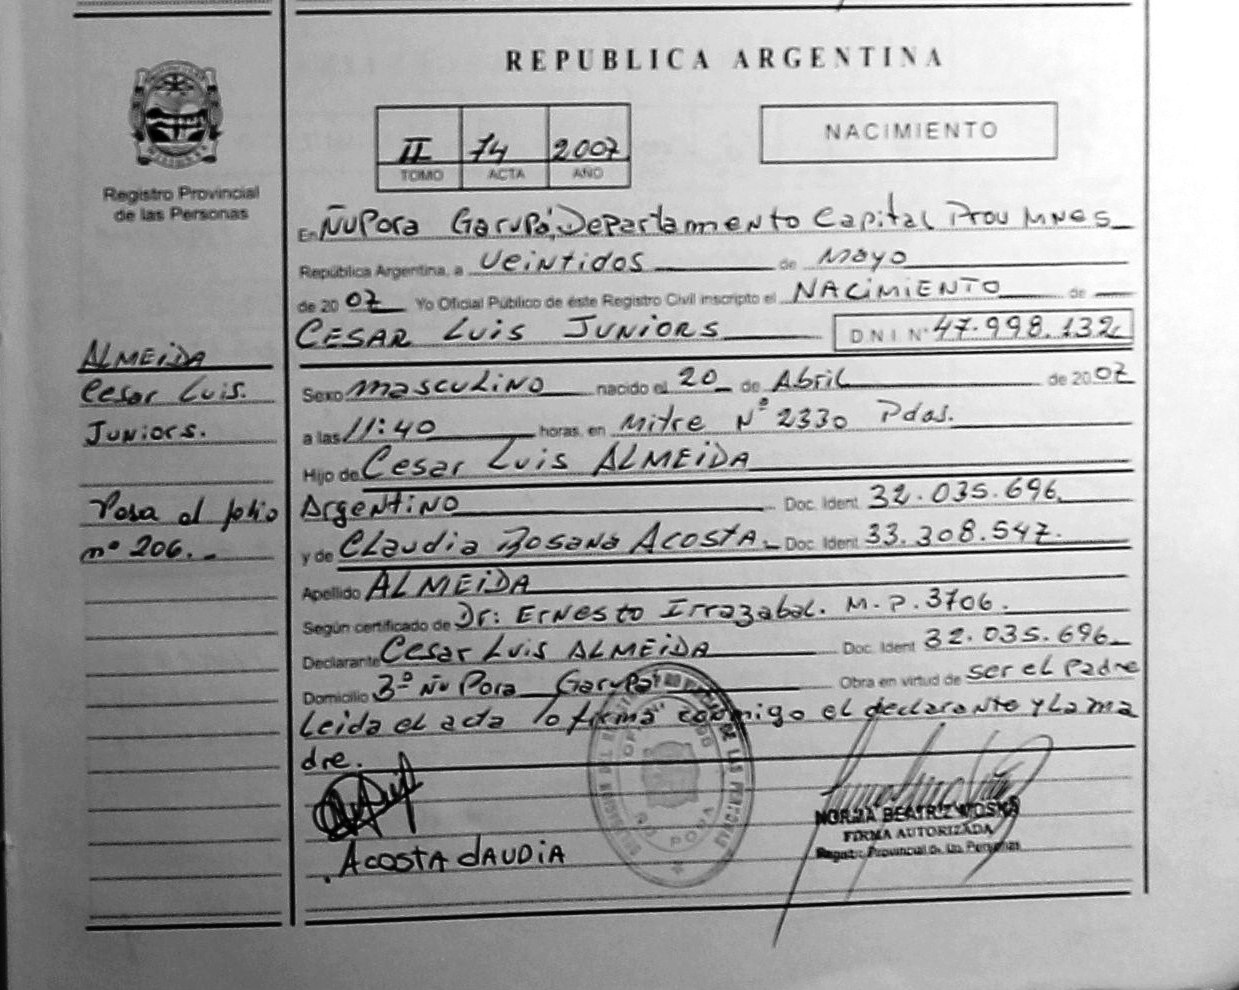 REPUBLICA ARGENTINA
II 74 2007
TOMO ACTA AÑO
NACIMIENTO
Registro Provincial
de las Personas
En Ñu Pora Garupá, Departamento Capital Prov MNES
República Argentina, a veintidos de Mayo
de 2007 Yo Oficial Público de éste Registro Civil inscripto el NACIMIENTO de
CESAR LUIS JUNIORS DNI Nº 47.998.132
ALMEIDA
Cesar Luis.
Juniors.
Pasa al folio
nº 206.
Sexo masculino nacido el 20 de Abril de 2007
a las 11:40 horas, en Mitre Nº 2330 Pdas.
Hijo de Cesar Luis ALMEIDA
Argentino Doc. Ident 32.035.696
y de Claudia Rosana ACOSTA Doc. Ident 33.308.547.
Apellido ALMEIDA
Según certificado de Dr: Ernesto Irrazabal. M.P. 3706.
Declarante Cesar Luis ALMEIDA Doc. Ident 32.035.696
Domicilio 3º Ñu Pora Garupá Obra en virtud de ser el Padre
Leida el acta lo firma conmigo el declarante y la ma
dre.
ACOSTA CLAUDIA
FIRMA AUTORIZADA
Registro Provincial de las Personas